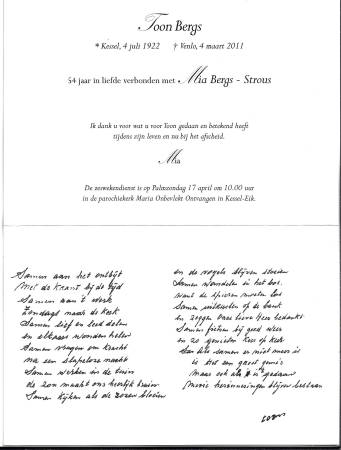 Toon Bergs
* Kessel, 4 juli 1922 † Venlo, 4 maart 2011
54 jaar in liefde verbonden met Mia Bergs - Strous
Ik dank u voor wat u voor Toon gedaan en betekend heeft
tijdens zijn leven en nu bij het afscheid.
Mia
De zeswekendienst is op Palmzondag 17 april om 10.00 uur
in de parochiekerk Maria Onbevlekt Ontvangen in Kessel-Eik.
Samen aan het ontbijt
Met de krant bij de tijd
Samen aan 't werk
Zondags naar de kerk
Samen lief en leed delen
en elkaars wonden helen
Samen vragen om kracht
na een slapeloze nacht
Samen werken in de tuin
de zon maakt ons heerlijk bruin
Samen kijken als de rozen bloeien
en de vogels blijven
Samen wandelen in het bos
want de spieren moeten los
Samen uitrusten op de bank
en zeggen Onze Lieve Heer bedankt
Samen fietsen bij goed weer
en zo genieten keer op keer
samen er niet meer is
is het een groot gemis
Maar ook als 't is gedaan
Mooie herinneringen blijven bestaan